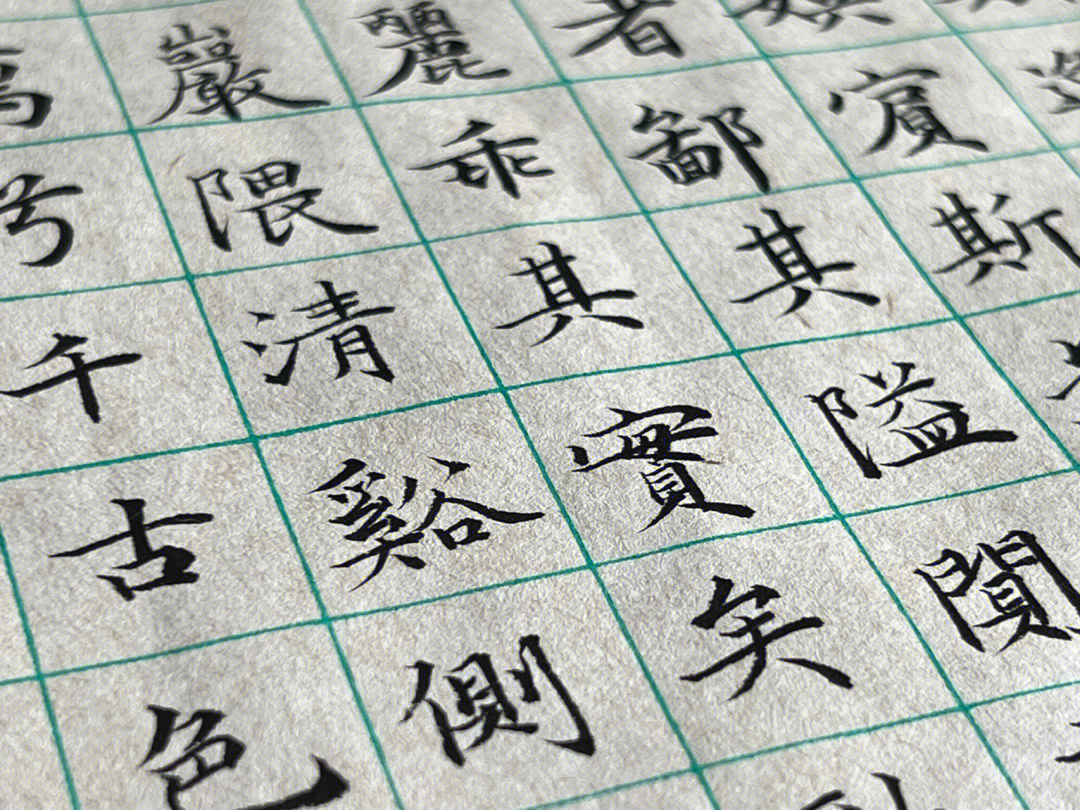 賓斯
者鄙其隘
麗乖其實矣
巖隈清谿側
兮千古色